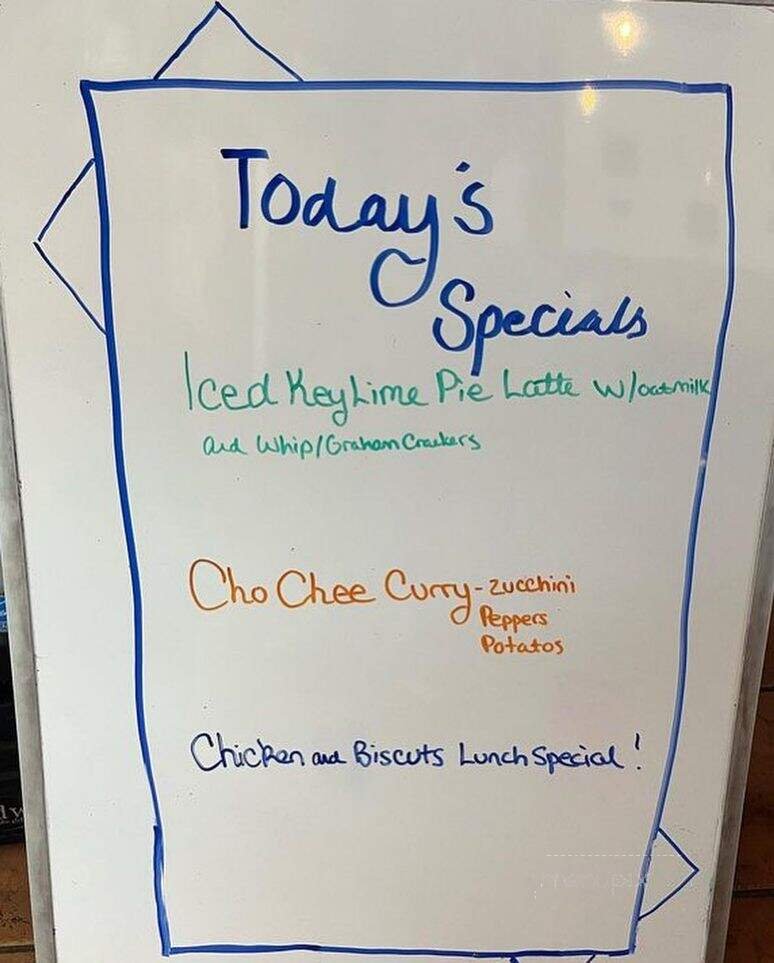 Today's
Specials
Iced Key Lime Pie Latte w/oatmilk
and Whip/Graham Crackers
Cho Chee Curry - zucchini
Peppers
Potatos
Chicken and Biscuts Lunch Special!
menupix